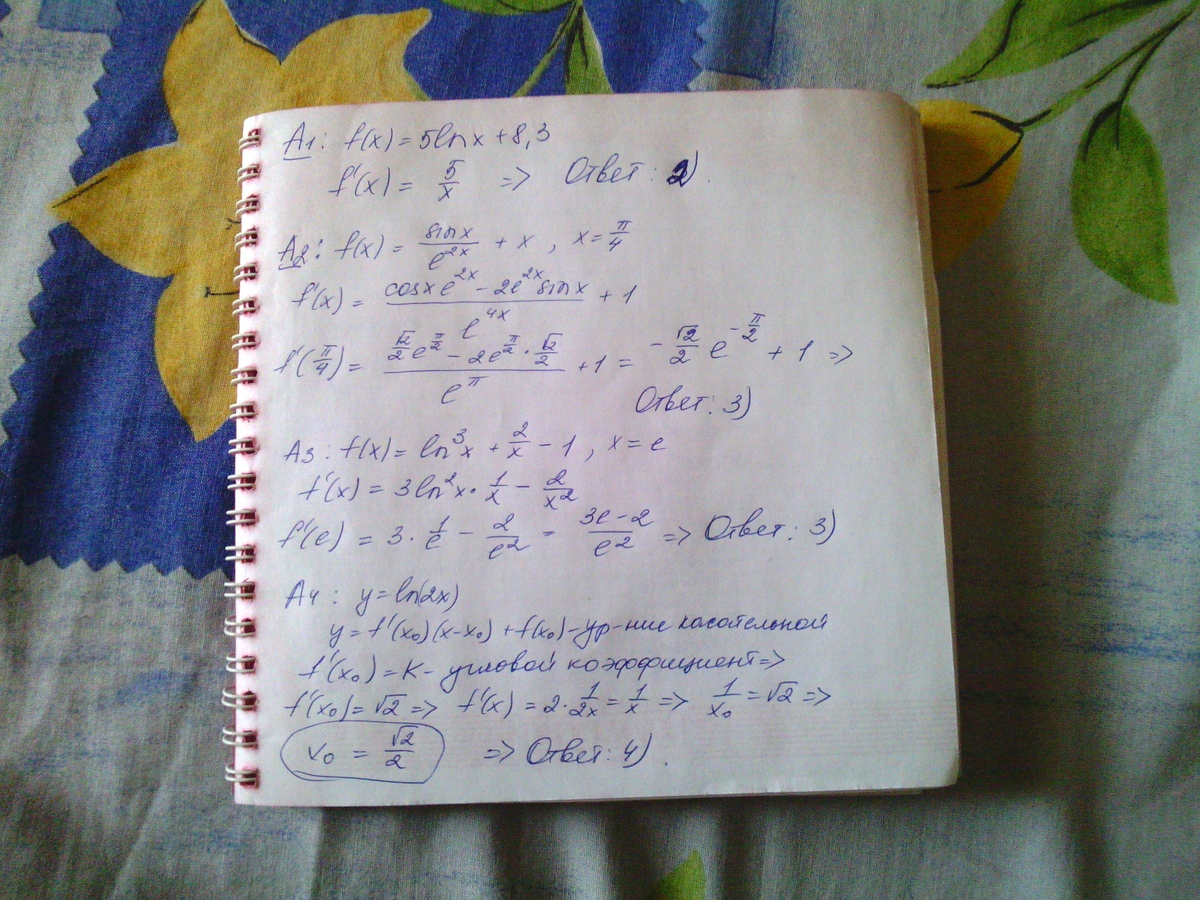 А1: f(x) = 5lnx + 8,3
f'(x) = 5/x => Ответ: 2).
А2: f(x) = sinx/e^2x + x, x = π/4
f'(x) = (cosx e^2x - 2e^2x sinx)/e^4x + 1
f'(π/4) = (√2/2 e^π/2 - 2e^π/2 · √2/2)/e^π + 1 = -√2/2 e^-π/2 + 1 =>
Ответ: 3)
А3: f(x) = ln^3 x + 2/x - 1, x = e
f'(x) = 3ln^2 x · 1/x - 2/x^2
f'(e) = 3 · 1/e - 2/e^2 = (3e-2)/e^2 => Ответ: 3)
А4: y = ln(2x)
y = f'(x₀)(x-x₀) + f(x₀) - ур-ние касательной
f'(x₀) = K - угловой коэффициент =>
f'(x₀) = √2 => f'(x) = 2 · 1/2x = 1/x => 1/x₀ = √2 =>
x₀ = √2/2 => Ответ: 4).